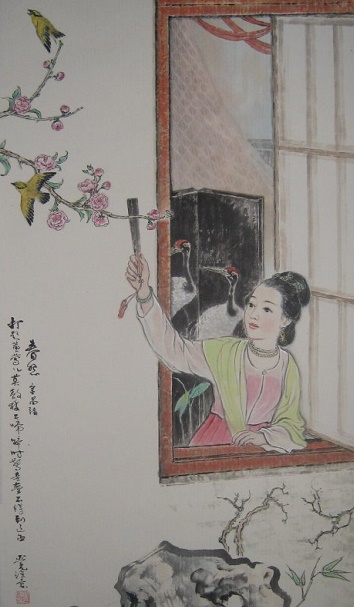 春怨 金昌緒
打起黃鶯儿莫教枝上啼啼時驚妾夢不得到辽西